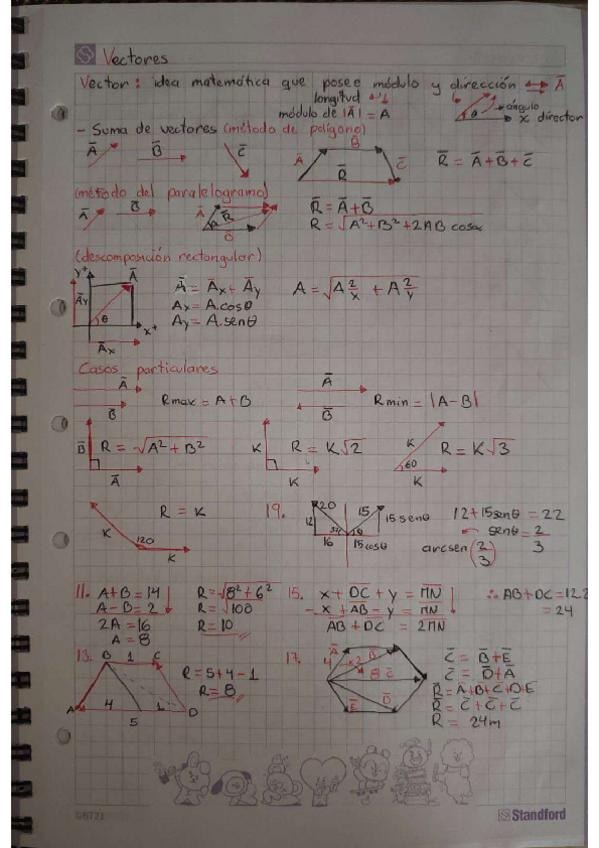 Vectores
Vector: idea matemática que posee módulo y dirección ↔ A̅
longitud
módulo de |A̅| = A
ángulo
θ x director
- Suma de vectores (método de polígono)
A̅ B̅ C̅ A̅ B̅ C̅ R̅
R̅ = A̅+B̅+C̅
(método del paralelogramo)
A̅ B̅ A̅ R̅
R̅ = A̅+B̅
R = √A²+B²+2AB cosα
(descomposición rectangular)
y+ A̅ A̅y θ x+ A̅x
A̅ = A̅x + A̅y
Ax = A.cosθ
Ay = A.senθ
A = √A²x + A²y
Casos particulares
A̅ B̅ Rmax = A+B
A̅ B̅ Rmin = |A-B|
B̅ A̅ R = √A²+B²
K K R = K√2
K 60 K R = K√3
K 120 K R = K
19. 20 12 16 15 θ 15senθ 15cosθ
12+15senθ = 22
senθ = 2/3
arcsen(2/3)
11. A+B = 14
A-B = 2
2A = 16
A = 8
R = √8²+6²
R = √100
R = 10
15. x + D̅C̅ + y = M̅N̅
- x + A̅B̅ - y = M̅N̅
A̅B̅ + D̅C̅ = 2M̅N̅
∴ AB+DC = 12.2
= 24
13. B 1 C A 4 1 D 5
R = 5+4-1
R = 8
17. A̅ 4 B̅ 8 C̅ E̅ D̅
C̅ = B̅+E̅
C̅ = D̅+A̅
R̅ = A̅+B+C̅+D+E
R̅ = C̅+C̅+C̅
R = 24m
Standford